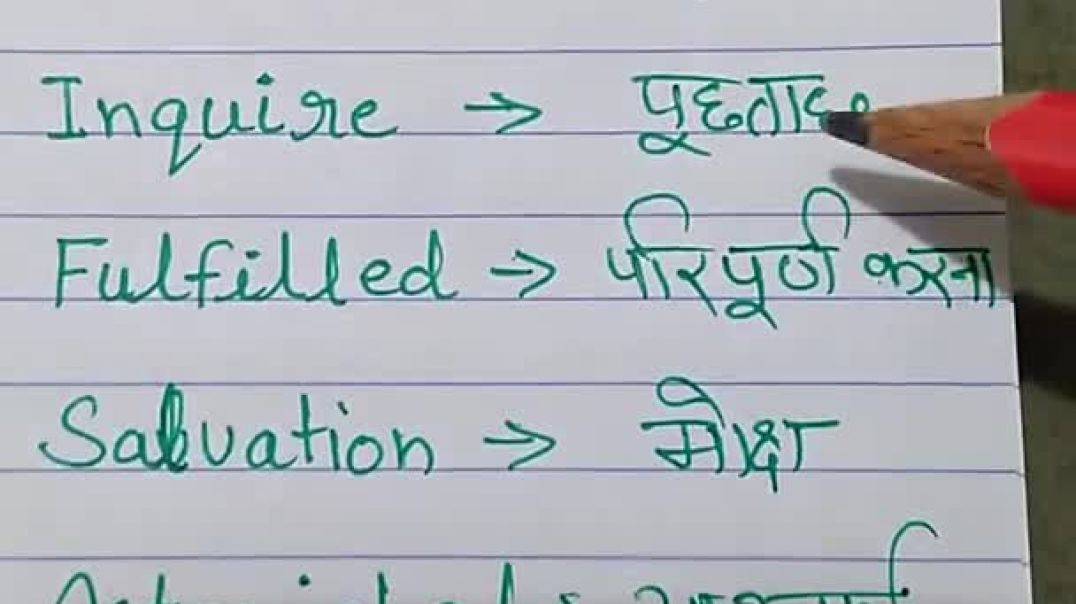 Inquire → पूछताछ
Fulfilled → परिपूर्ण करना
Salvation → मोक्ष